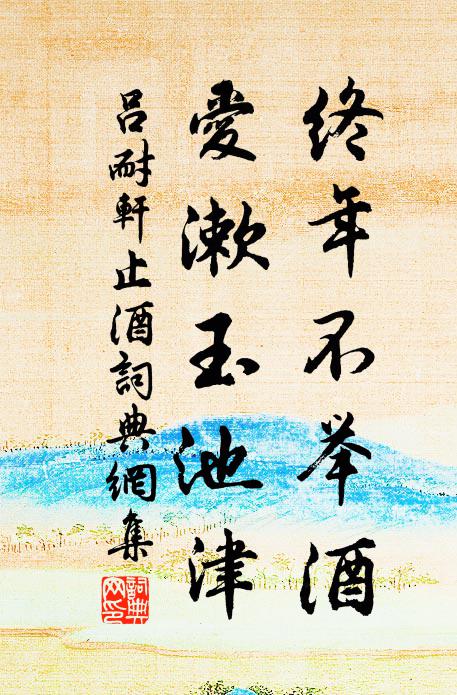 终年不举酒
愛漱玉池津
吕耐軒止酒詞典網集
詞典